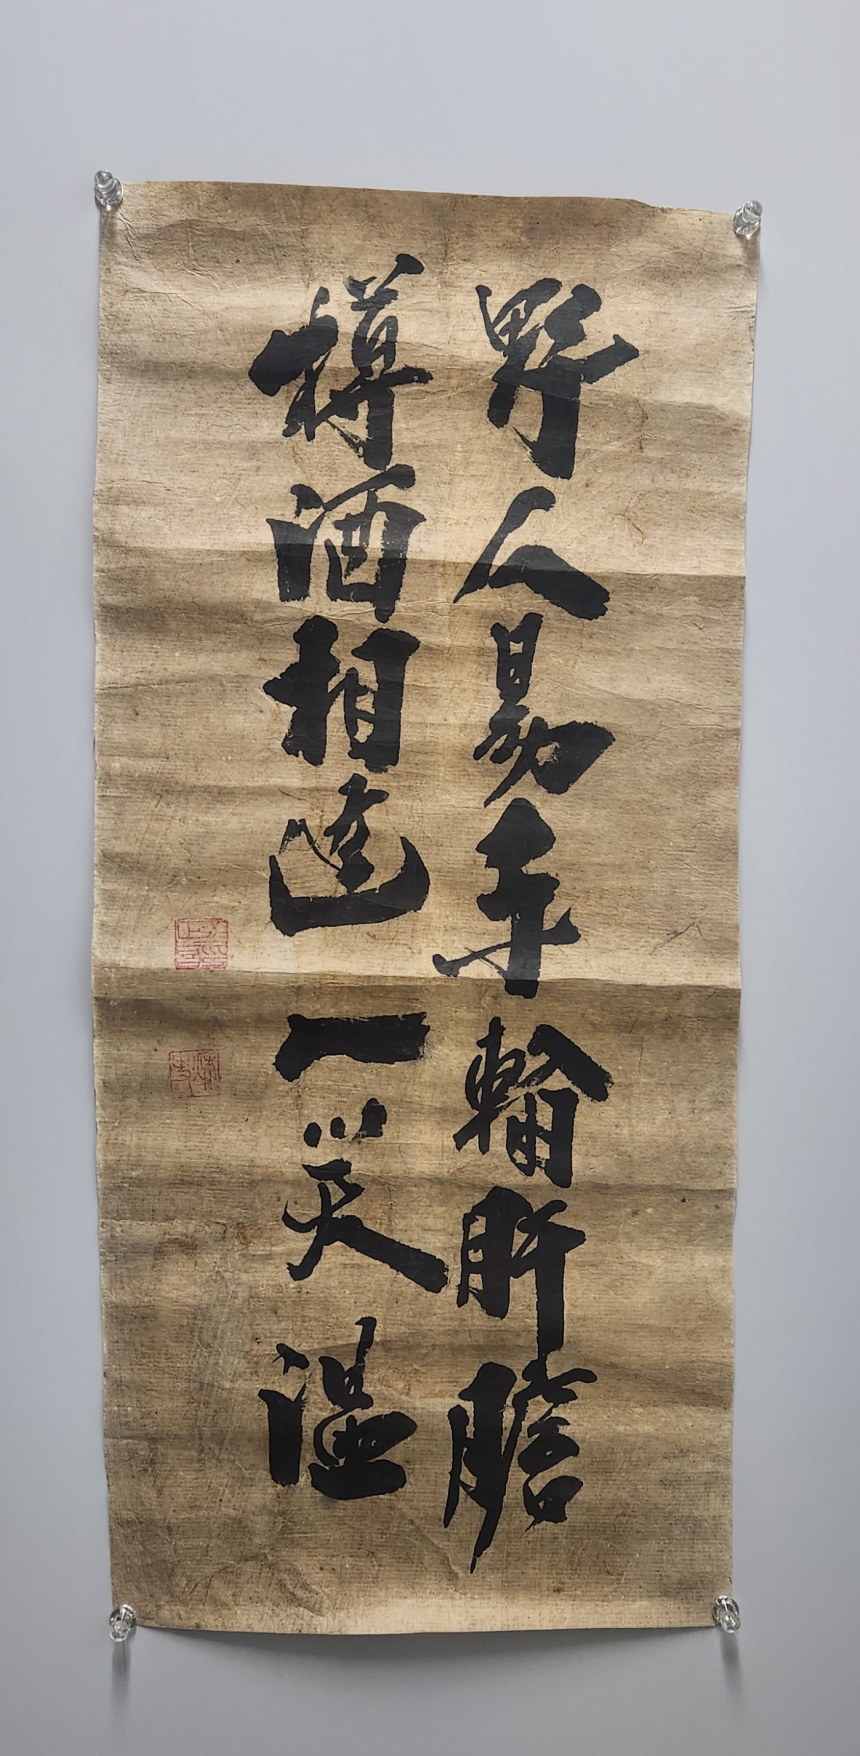 野人易輸肝膽
樽酒相逢一笑溫